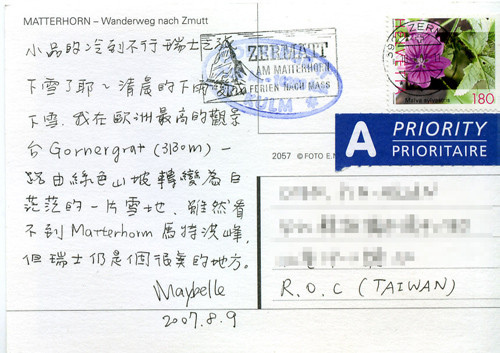 MATTERHORN – Wanderweg nach Zmutt
小品的冷到不行瑞士之旅
下雪了耶~清晨的下雨
下雪,我在歐洲最高的觀景
台 Gornergrat (3130m) 一
路由綠色山坡轉變為白
茫茫的一片雪地,雖然看
不到 Matterhorn 馬特洪峰,
但瑞士仍是個很美的地方。
Maybelle
2007.8.9
ZERMATT
AM MATTERHORN
FERIEN NACH MASS
KULM
3920 ZERMATT
HELVETIA
Malva sylvestris
180
A PRIORITY
PRIORITAIRE
2057 © FOTO E.
R.O.C (TAIWAN)